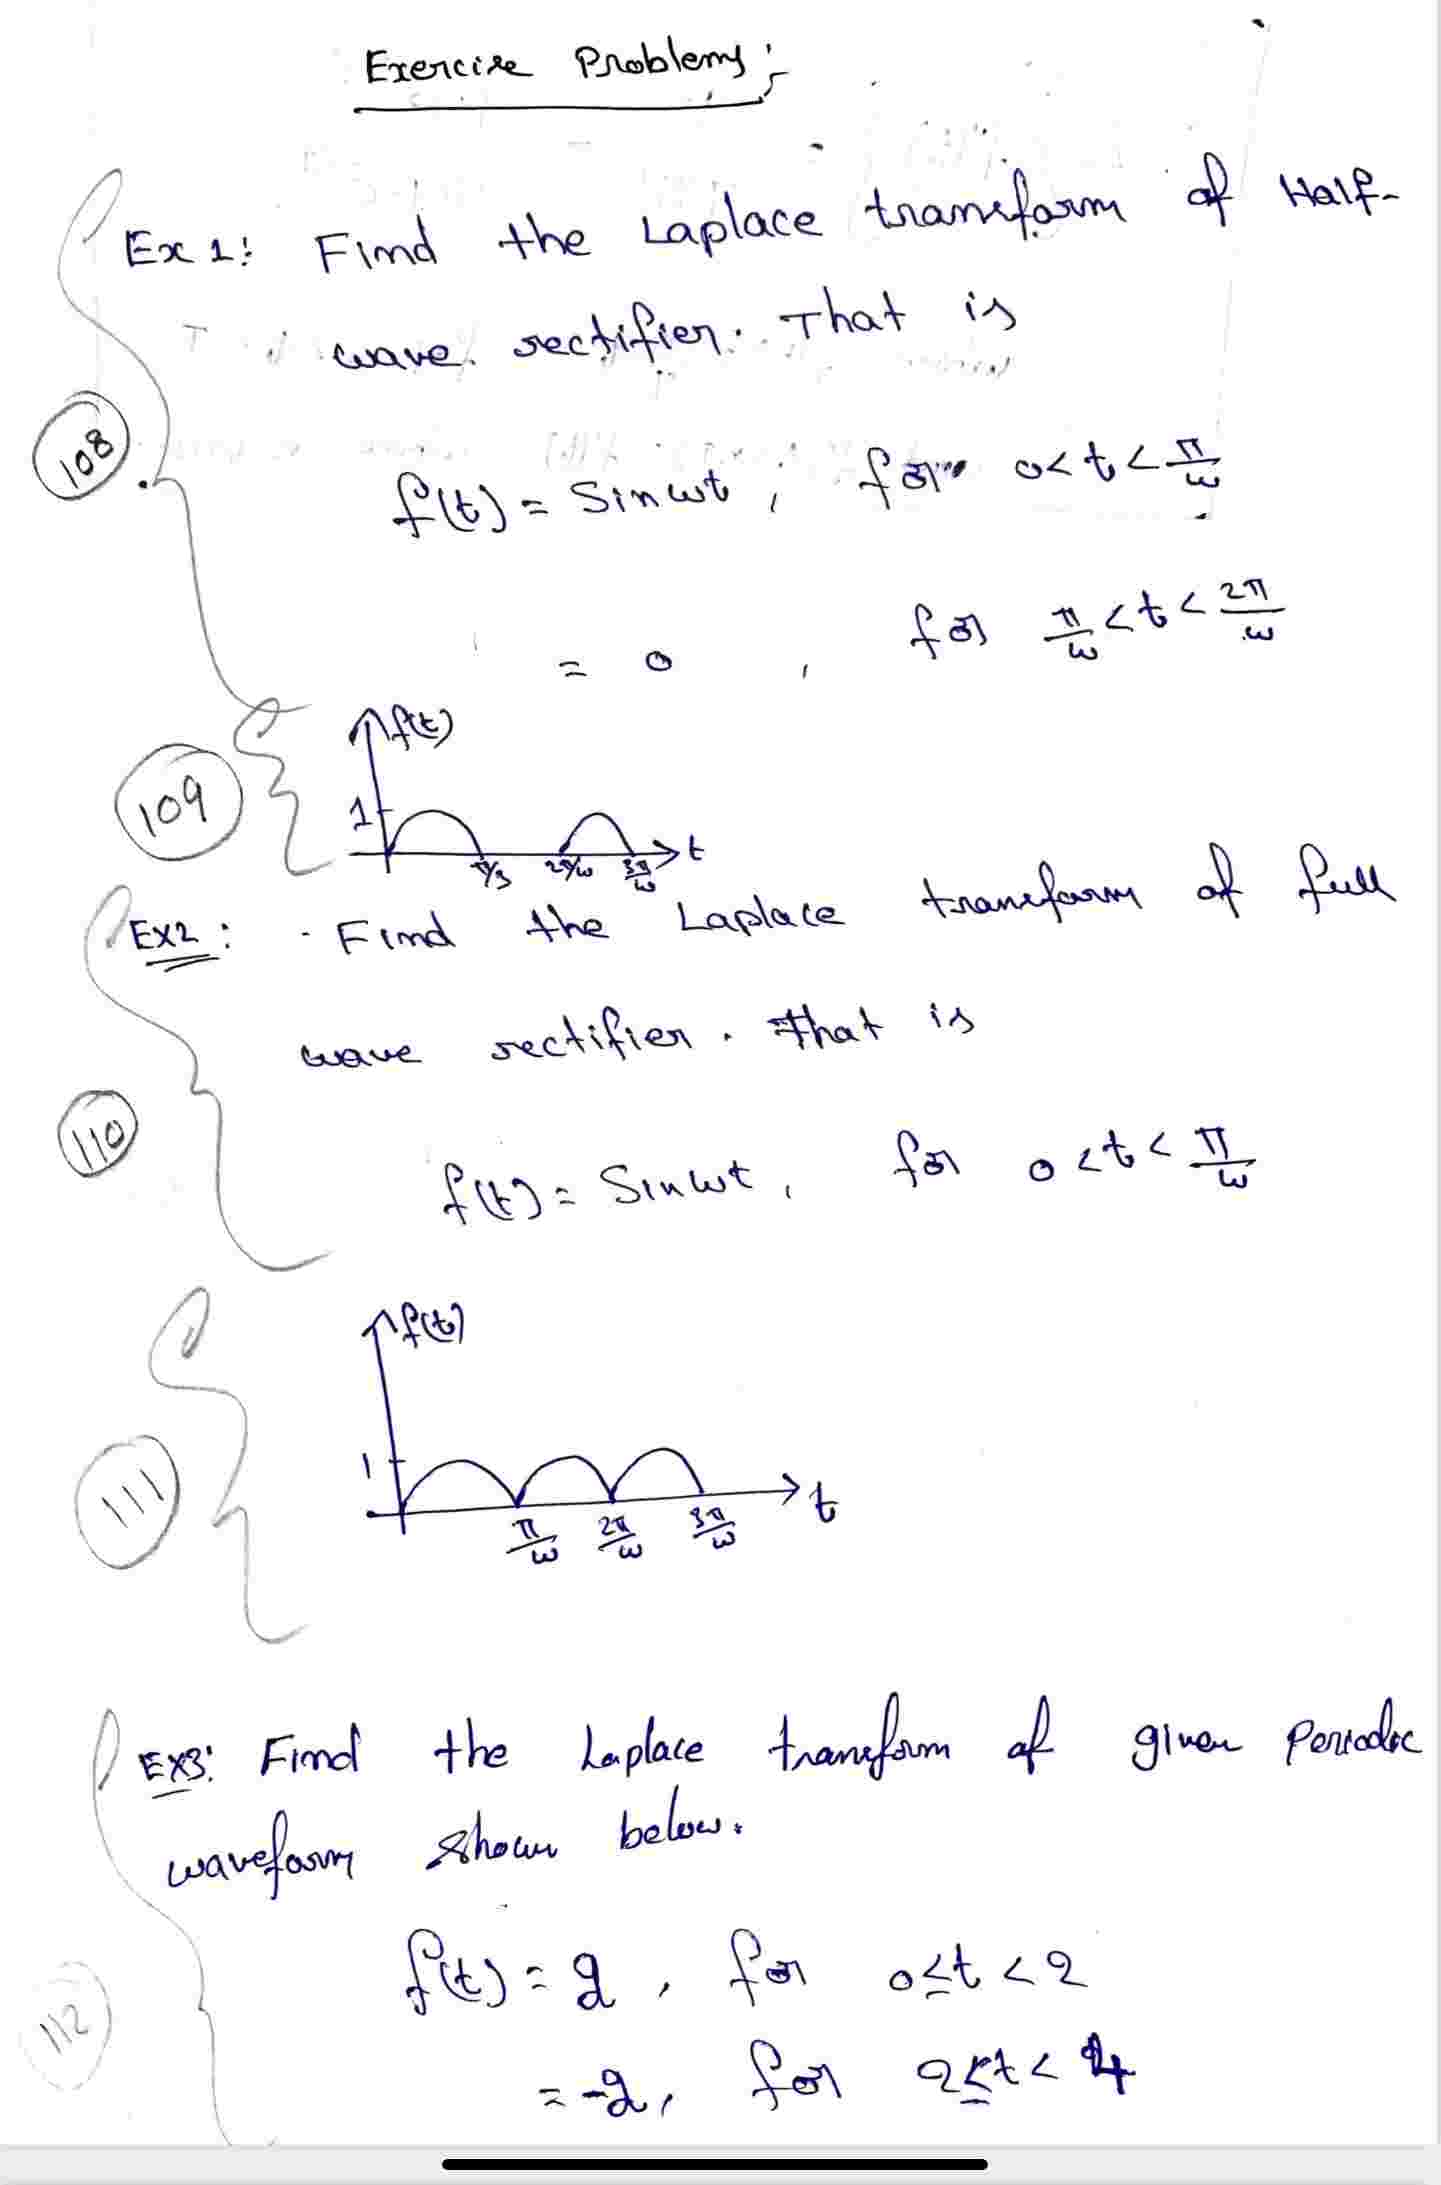 Exercise Problems;
Ex 1: Find the Laplace transform of Half-
wave rectifier. That is
108
f(t) = Sin ωt , for 0<t<π/ω
= 0 , for π/ω <t< 2π/ω
f(t)
109
1
t
π/3 2π/ω 3π/ω
Ex2: Find the Laplace transform of full
wave rectifier. That is
110
f(t) = Sin ωt, for 0<t<π/ω
f(t)
111
1
t
π/ω 2π/ω 3π/ω
Ex3: Find the Laplace transform of given Periodic
waveform shown below.
f(t) = 2 , for 0≤t<2
112
= -2, for 2≤t<4